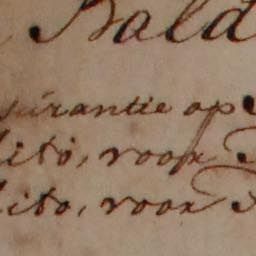 Bald
surantie op
dito, voor
dito, voor